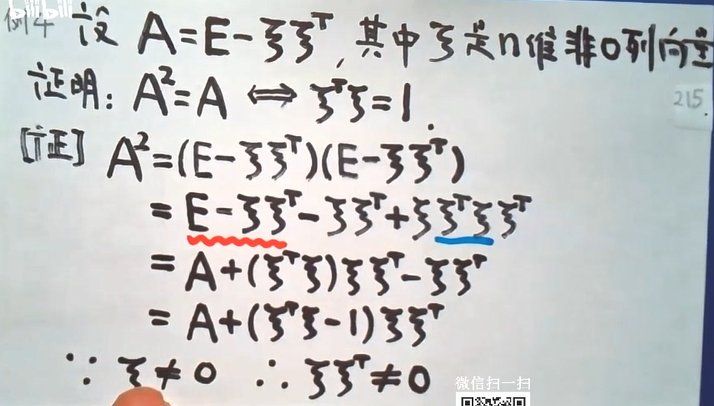 bilibili
例4 设 A=E-ξξᵀ, 其中ξ是n维非0列向量
证明: A²=A ⟺ ξᵀξ=1.
215.
[证] A²=(E-ξξᵀ)(E-ξξᵀ)
=E-ξξᵀ-ξξᵀ+ξξᵀξξᵀ
=A+(ξᵀξ)ξξᵀ-ξξᵀ
=A+(ξᵀξ-1)ξξᵀ
∵ ξ≠0 ∴ ξξᵀ≠0
微信扫一扫